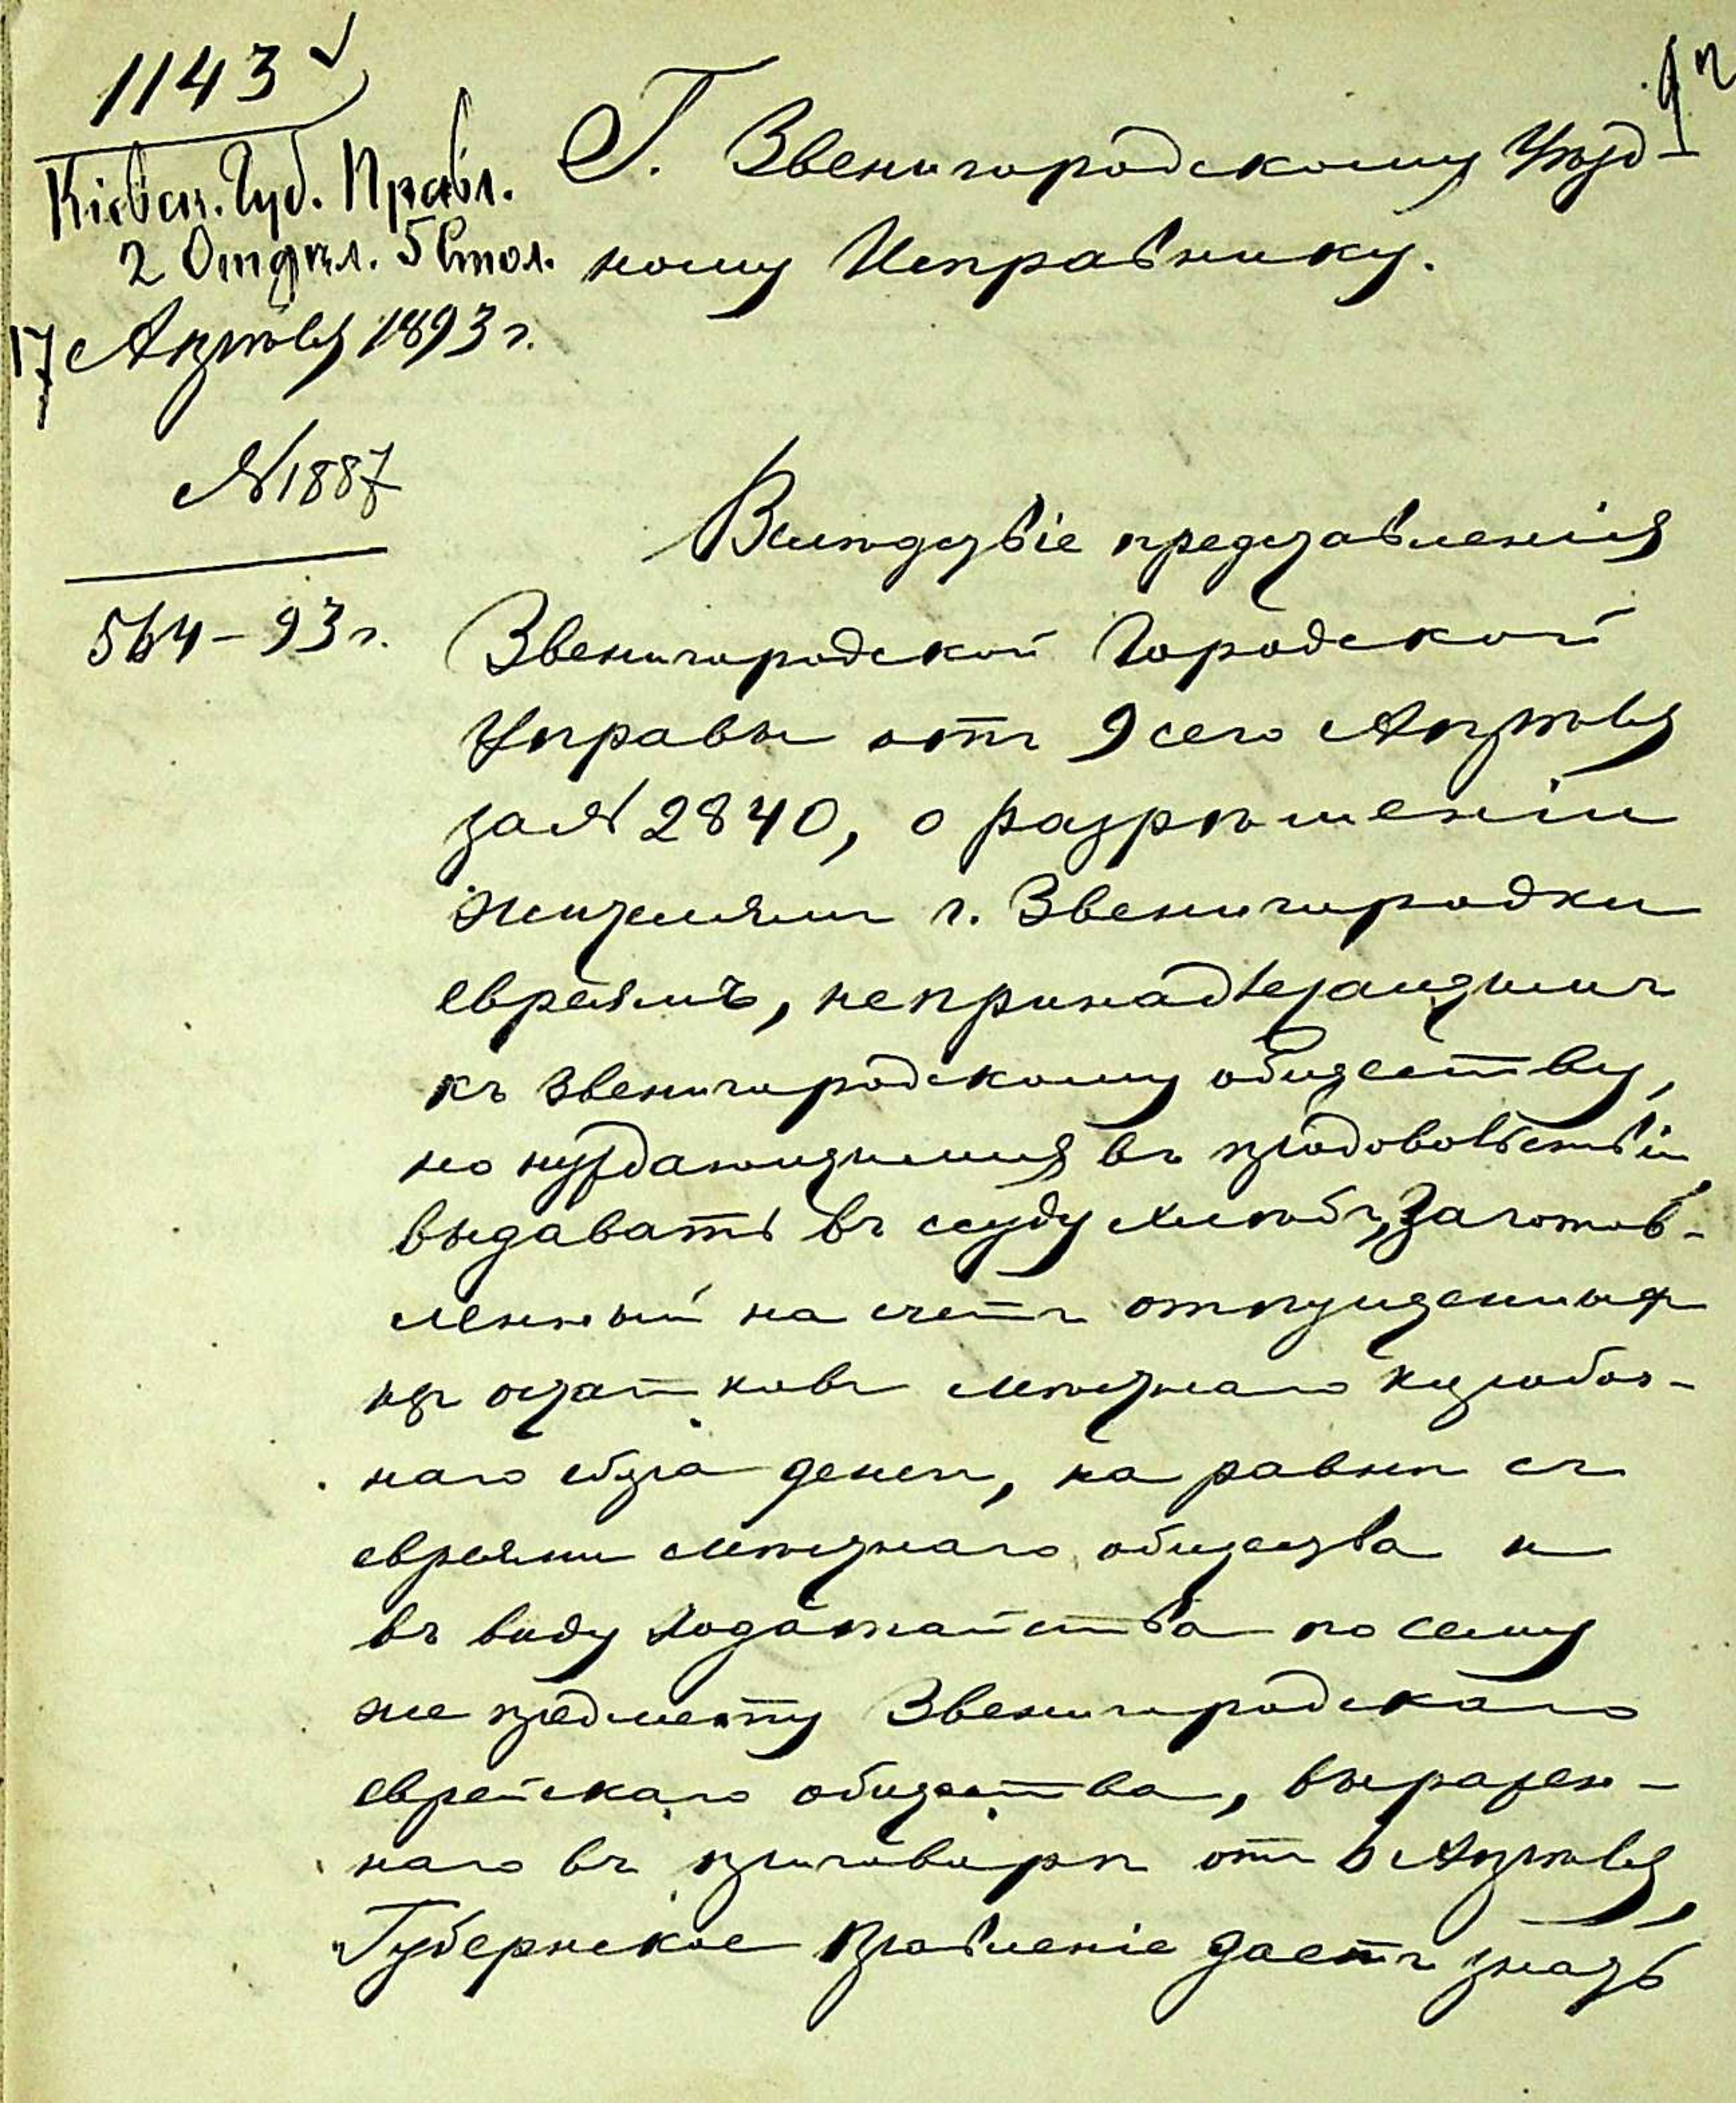 1143
Кіевск. Губ. Правл.
2 Отдѣл. 5 Стол.
17 Апрѣля 1893 г.
№ 1887
564 - 93 г.
Г. Звенигородскому Уѣзд-
ному Исправнику.
Вслѣдствіе представленія
Звенигородской Городской
Управы отъ 9 сего Апрѣля
за № 2840, о разрѣшеніи
жителямъ г. Звенигородки
евреямъ, непринадлежащимъ
къ Звенигородскому обществу,
но нуждающимся въ продовольствіи
выдавать въ ссуду хлѣбъ, заготов-
ленный на счетъ отпущенныхъ
изъ остатковъ мѣстнаго коробоч-
наго сбора денегъ, на равнѣ съ
евреями мѣстнаго общества и
въ виду ходатайства по сему
же предмету Звенигородскаго
еврейскаго общества, выражен-
наго въ приговорѣ отъ 6 Апрѣля,
Губернское Правленіе даетъ знать